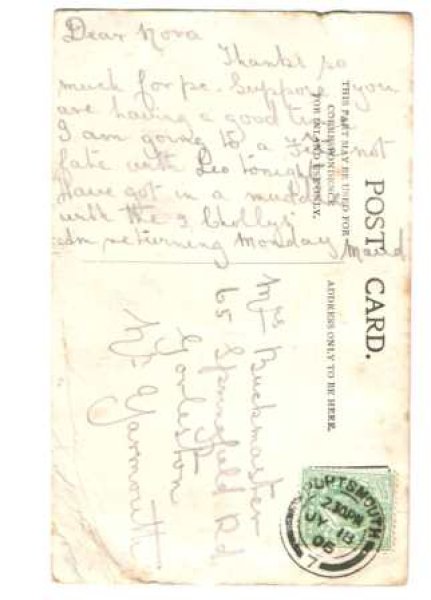 Dear Nora
Thanks so
much for pc. Suppose you
are having a good time
I am going to a not
fate with Leo tonight
Have got in a muddle
with the 2 Chollys
am returning Monday Maud
THIS PART MAY BE USED FOR
CORRESPONDENCE
FOR INLAND USE ONLY.
POST CARD.
ADDRESS ONLY TO BE HERE.
Mrs Buckmaster
65 Springfield Rd
Gorleston
Nr Yarmouth
PORTSMOUTH
2.30PM
JY 18
06
7